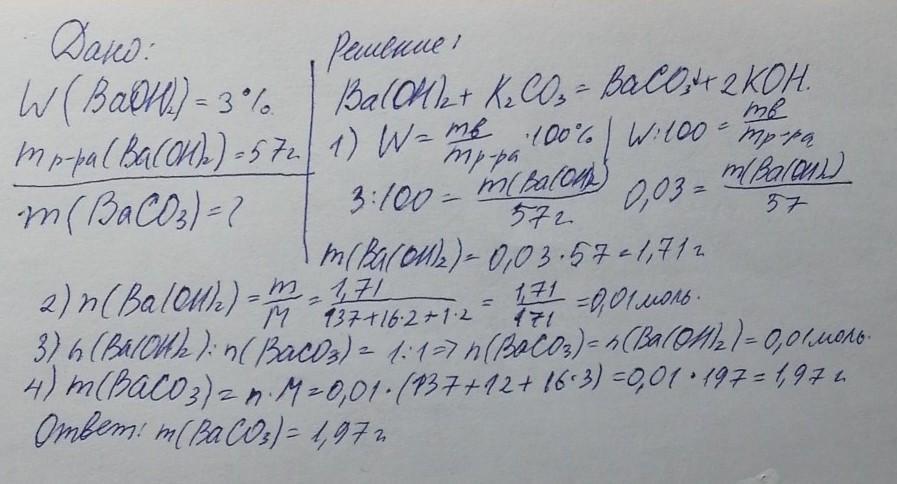 Дано:
W(Ba(OH)₂) = 3%.
m р-ра(Ba(OH)₂) = 57г
m(BaCO₃) = ?
Решение:
Ba(OH)₂ + K₂CO₃ = BaCO₃↓ + 2KOH.
1) W = mв/mр-ра · 100% | W:100 = mв/mр-ра
3:100 = m(Ba(OH)₂)/57г 0,03 = m(Ba(OH)₂)/57
m(Ba(OH)₂) = 0,03 · 57 = 1,71г
2) n(Ba(OH)₂) = m/M = 1,71/137+16·2+1·2 = 1,71/171 = 0,01моль.
3) n(Ba(OH)₂) : n(BaCO₃) = 1:1 => n(BaCO₃) = n(Ba(OH)₂) = 0,01моль.
4) m(BaCO₃) = n · M = 0,01 · (137+12+16·3) = 0,01 · 197 = 1,97 г
Ответ: m(BaCO₃) = 1,97г